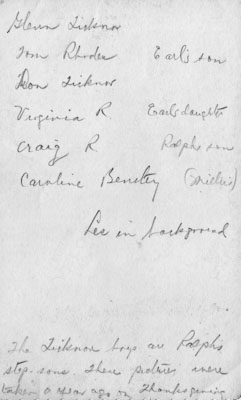 Glenn Ticknor
Tom Rhodes Earl's son
Don Ticknor
Virginia R Earl's daughter
Craig R Ralphs son
Caroline Benstey
Les in background
The Ticknor boys are Ralphs
step-sons. These pictures were
taken a year ago on Thanksgiving